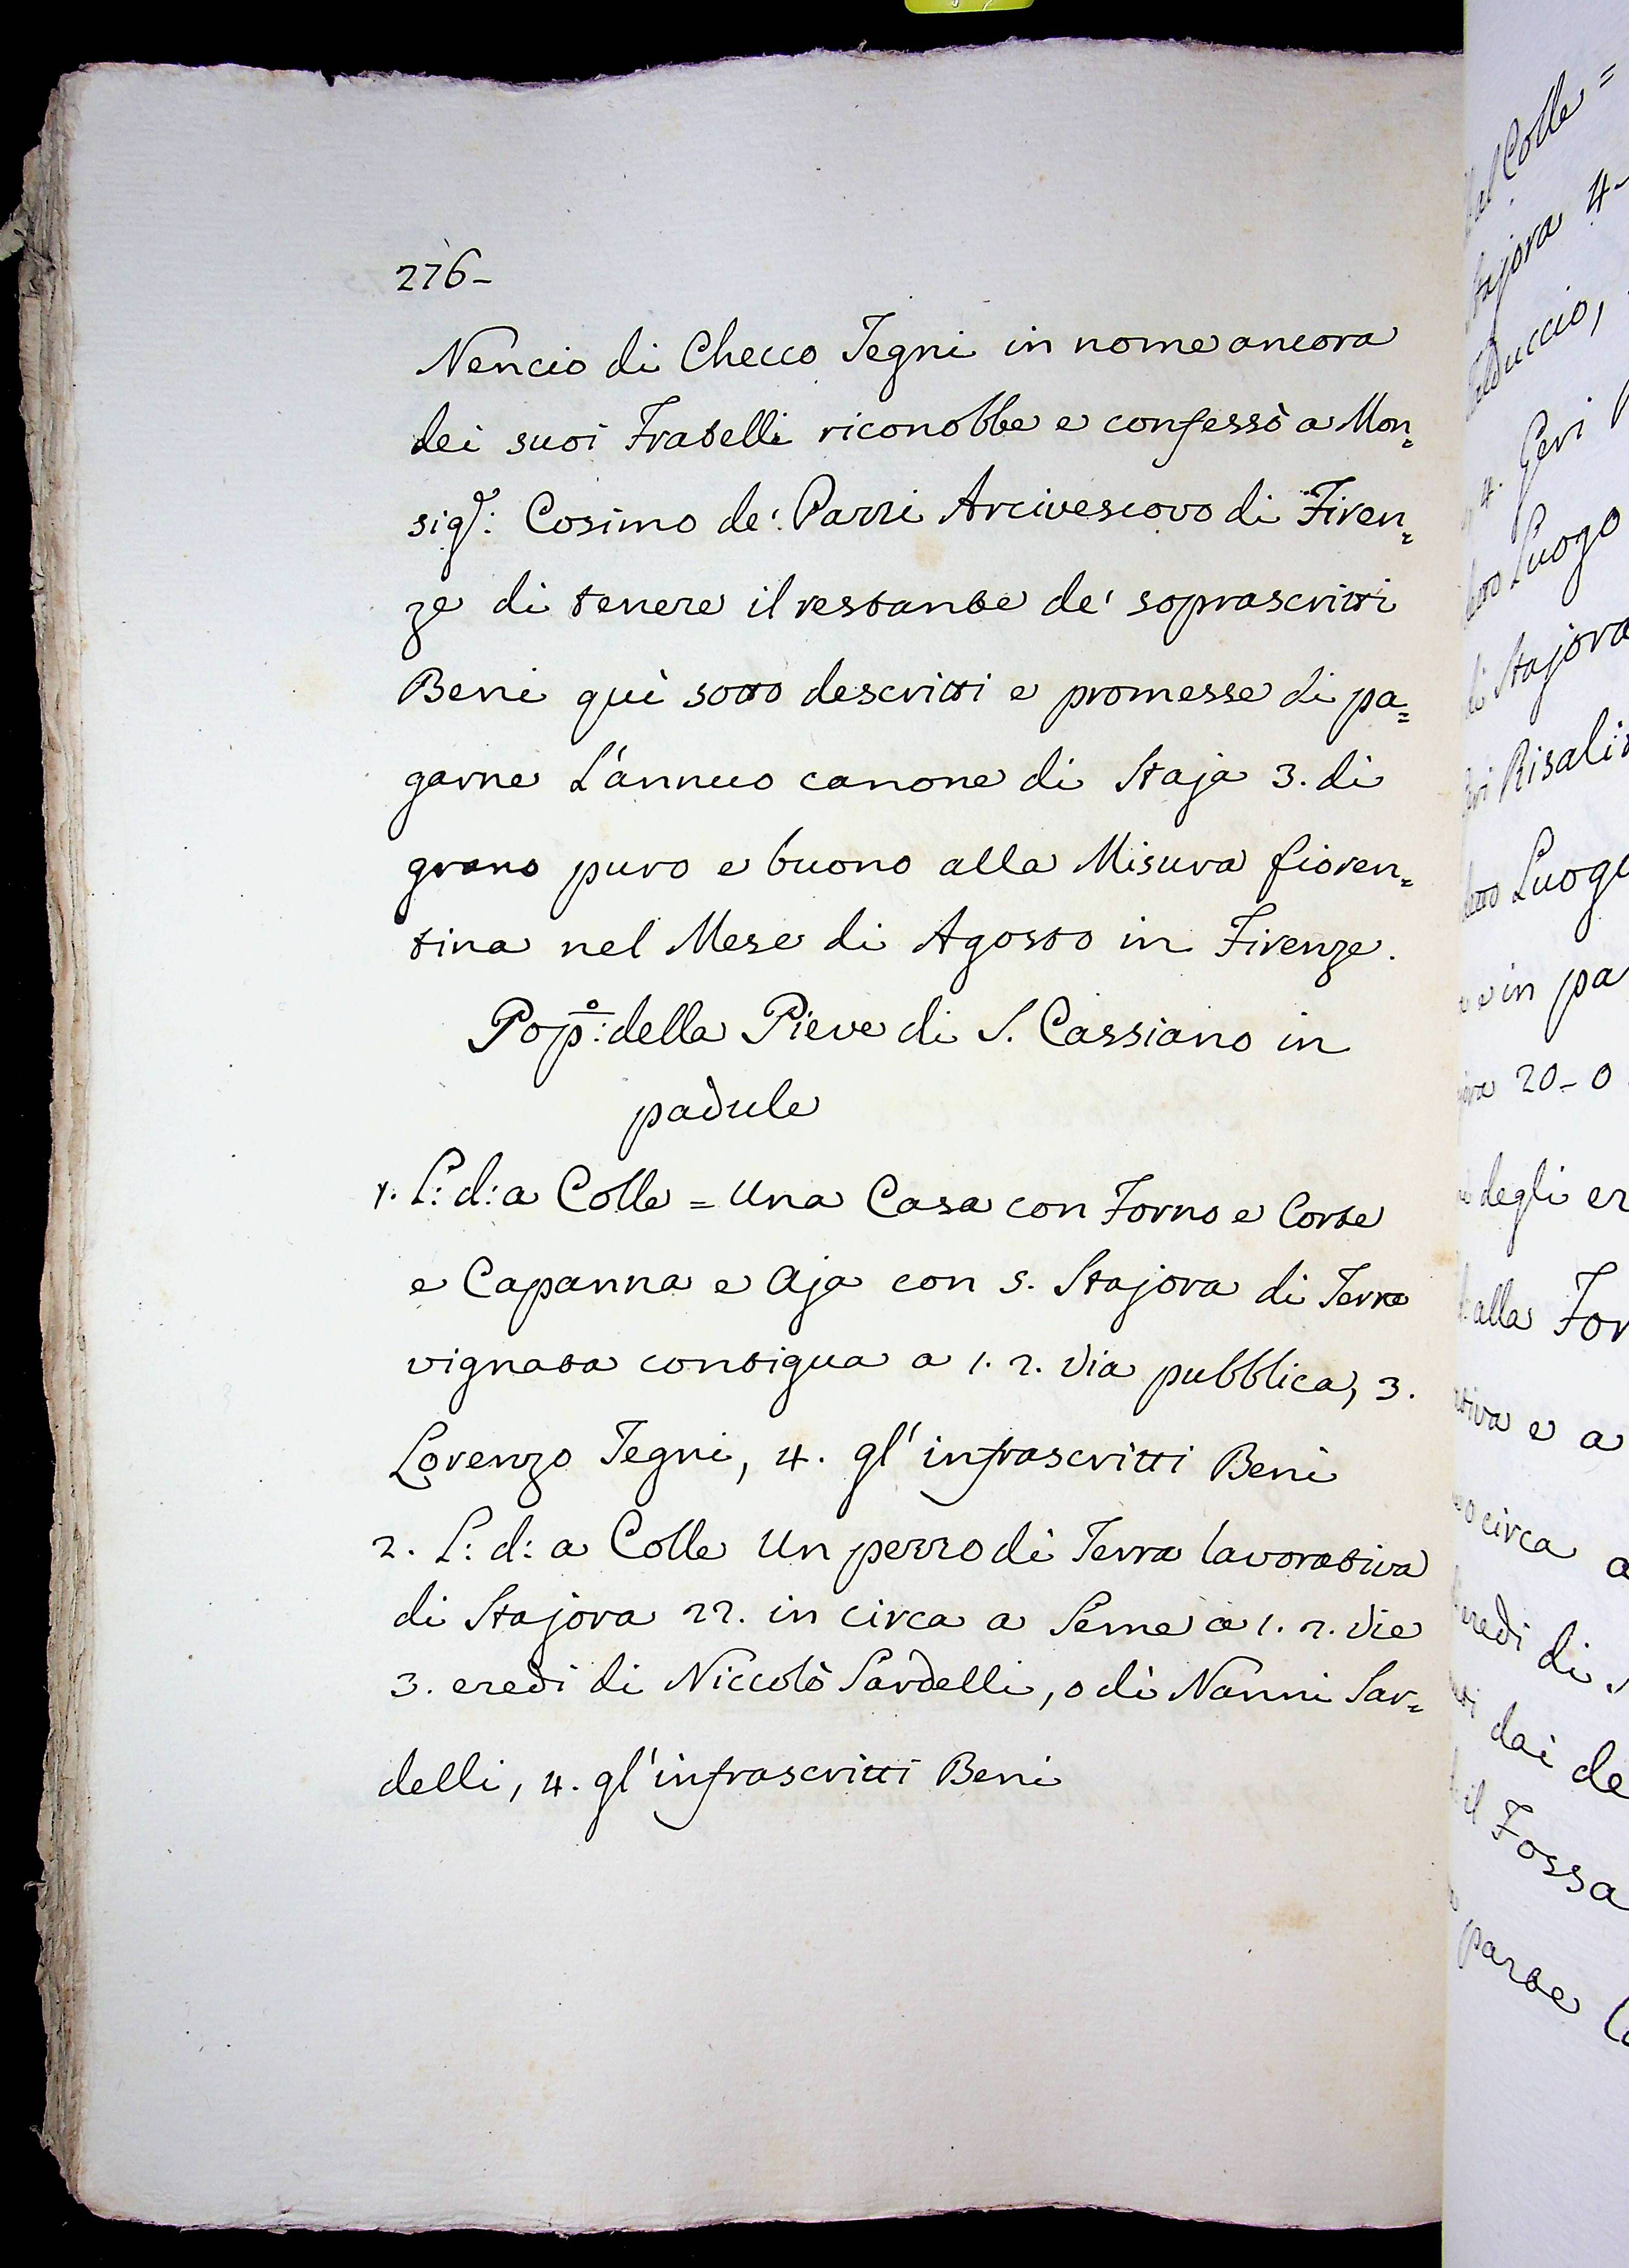 276-
Nencio di Checco Tegni in nome ancora
dei suoi Fratelli riconobbe e confessò a Mon=
sig.r: Cosimo de': Pazzi Arcivescovo di Firen=
ze di tenere il restante de' soprascritti
Beni quì sotto descritti e promesse di pa=
garne L'annuo canone di Staja 3. di
grano puro e buono alla Misura fioren=
tina nel Mese di Agosto in Firenze.
Pop.o: della Pieve di S. Cassiano in
padule
1. L: d: a Colle = Una Casa con Forno e Corte
e Capanna e Aja con 5. Stajora di Terra
vignata contigua a 1. 2. Via pubblica, 3.
Lorenzo Tegni, 4. gl' infrascritti Beni
2. L: d: a Colle Un pezzo di Terra lavorativa
di Stajora 22. in circa a Seme a 1. 2. Vie
3. eredi di Niccolò Sardelli, o di Nanni Sar=
delli, 4. gl' infrascritti Beni
Colle=
Stajora 4-
4. Geri
Luogo
di Stajora
Risali
Luogo
e in pa
20-0
degli er
alla For
e a
circa a
eredi di
dai de
il Fossa
parte